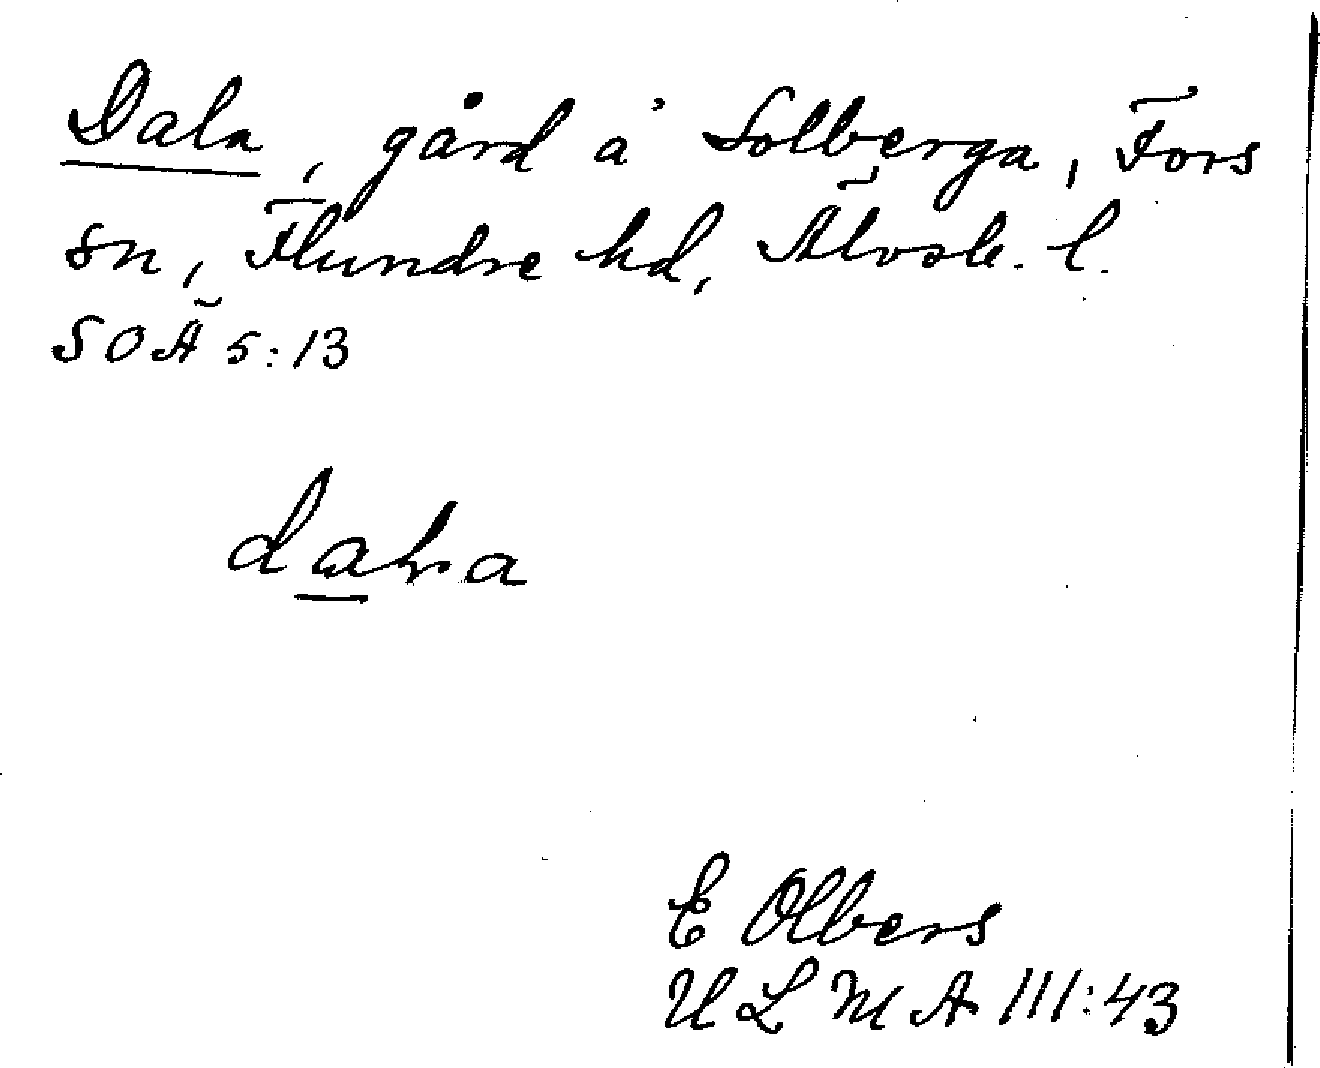 Dala, gård å Solberga, Fors
sn, Flundre hd, Älvsb. l.
SOÄ 5:13
dala
E Olbers
ULMA III:43